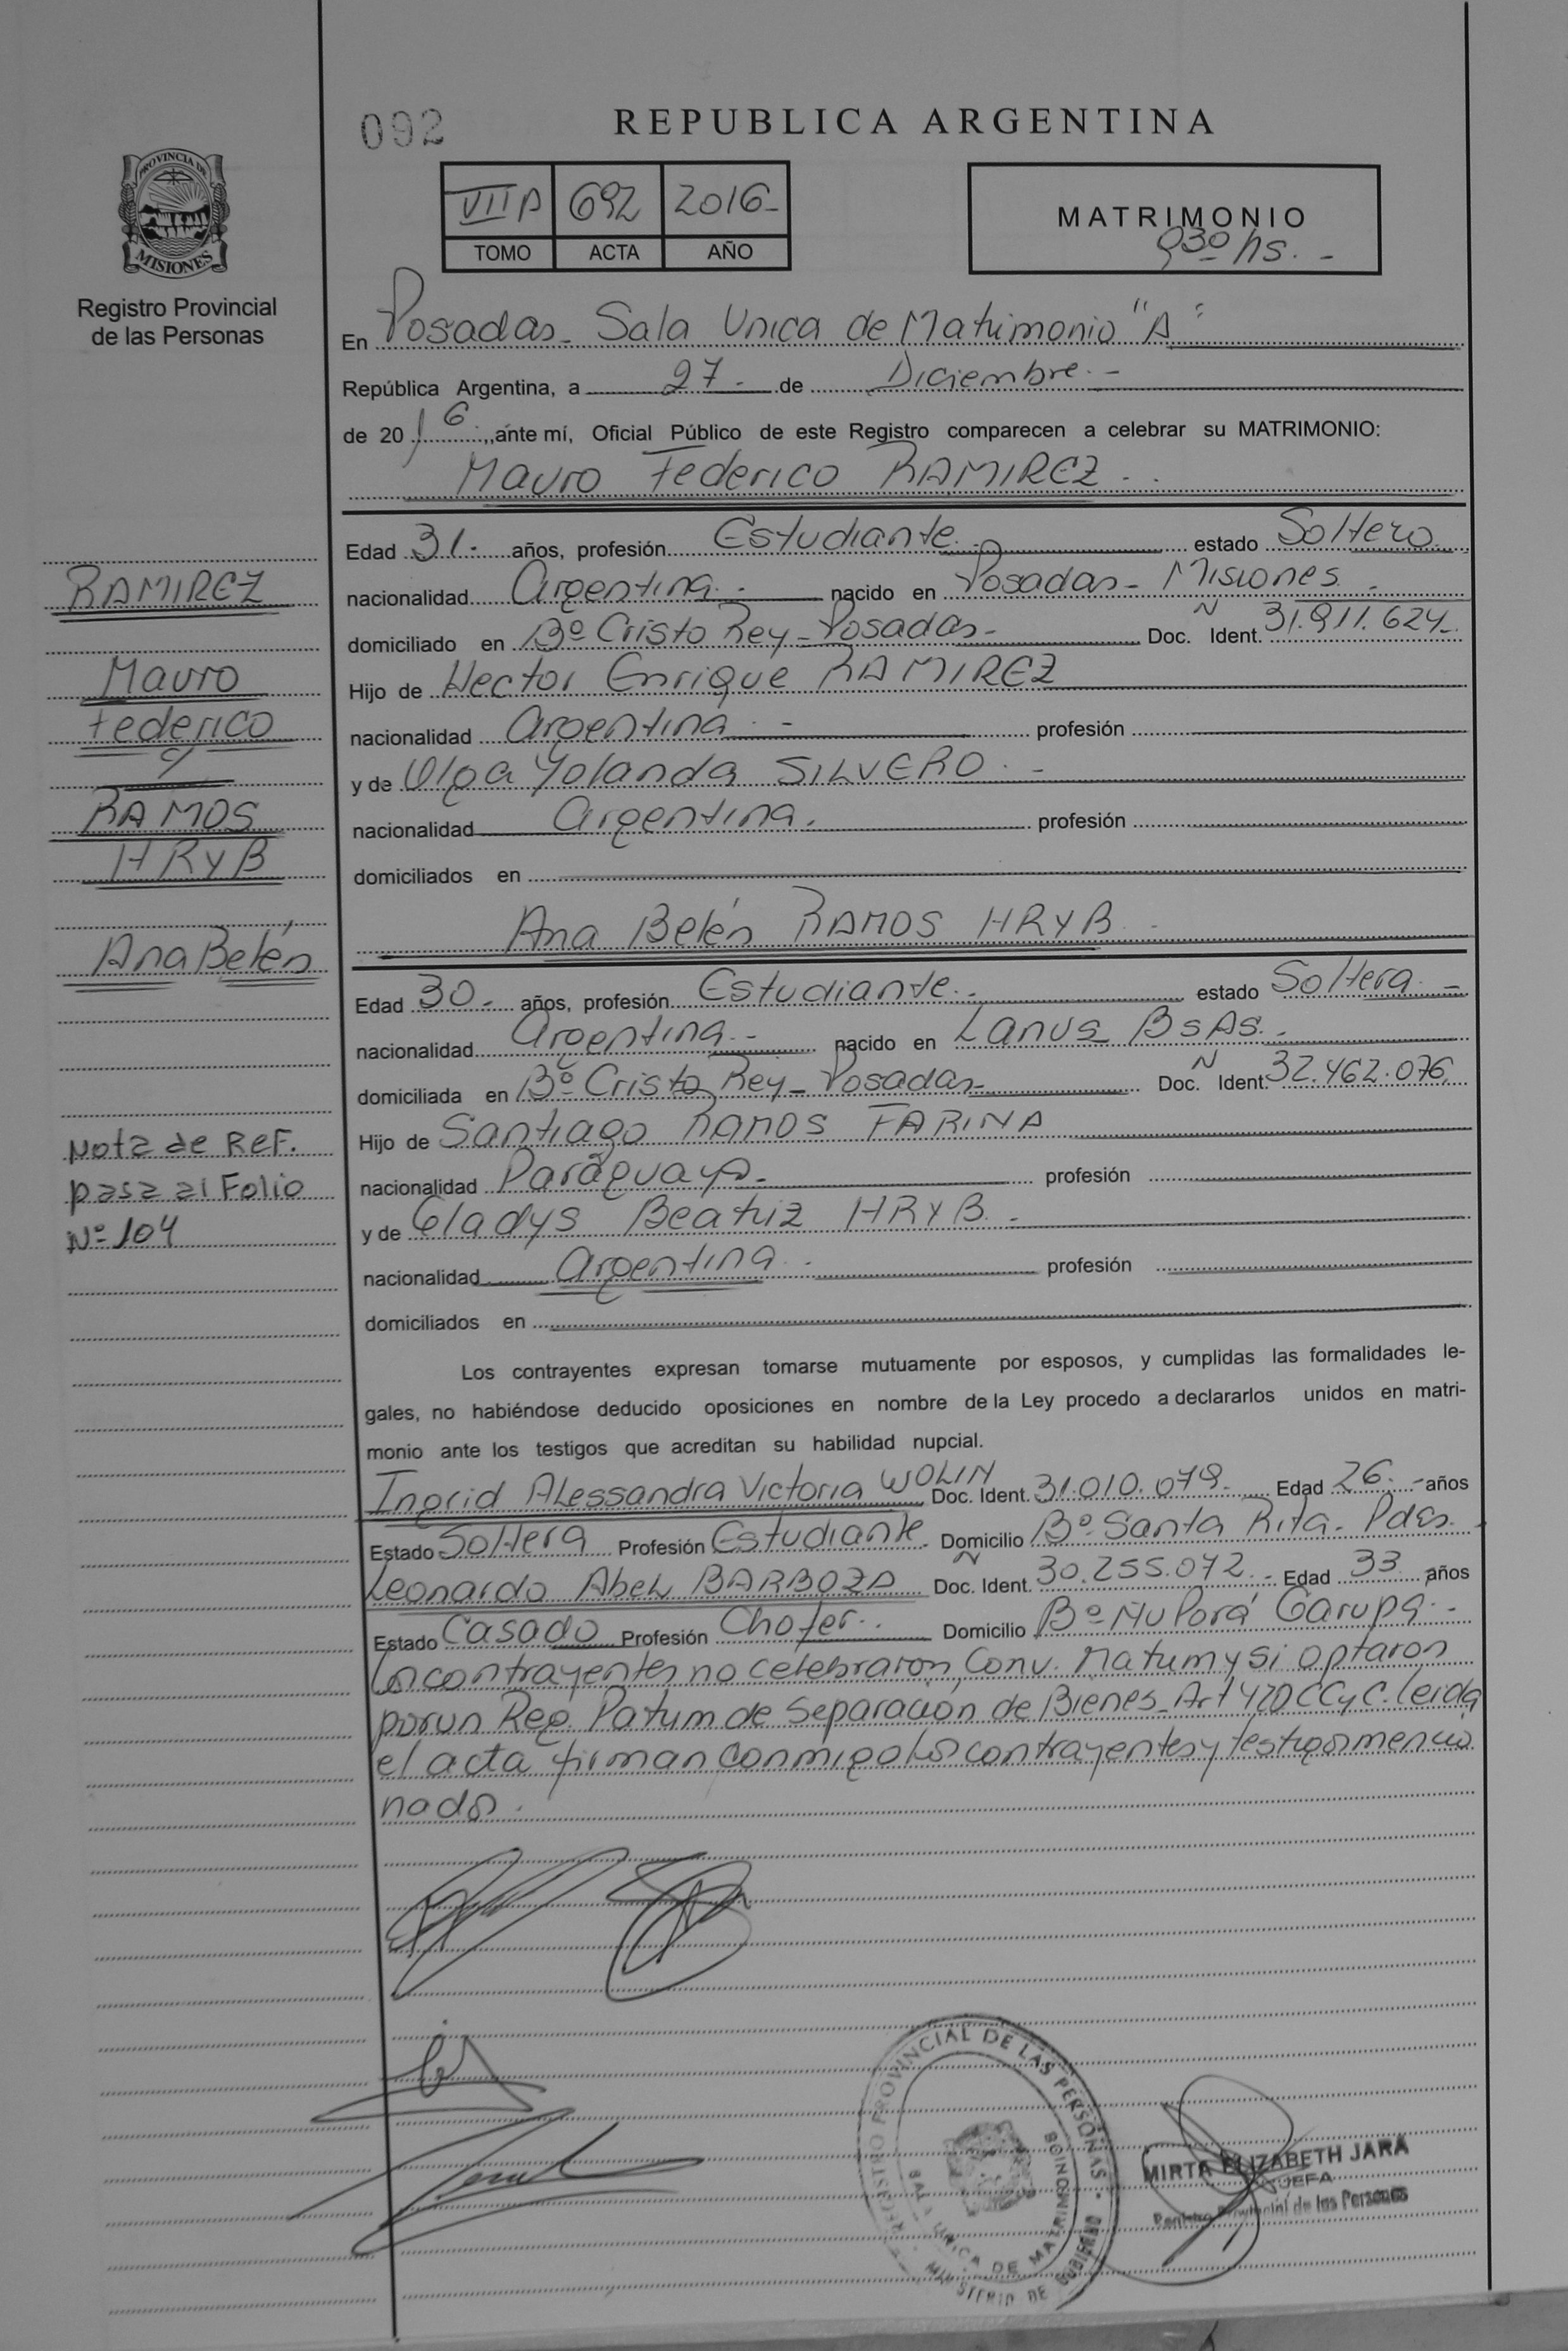 092
REPUBLICA ARGENTINA
PROVINCIA DE
MISIONES
Registro Provincial
de las Personas
VII A 692 2016-
TOMO ACTA AÑO
MATRIMONIO
930 hs. -
En Posadas - Sala Unica de Matrimonio "A"
República Argentina, a 27 - de Diciembre. -
de 20 16 ,ante mí, Oficial Público de este Registro comparecen a celebrar su MATRIMONIO:
Mauro Federico RAMIREZ. -
Edad 31. - años, profesión Estudiante. - estado Soltero.
nacionalidad Argentina. - nacido en Posadas - Misiones. -
domiciliado en Bº Cristo Rey - Posadas - Doc. N Ident. 31.911.624-
Hijo de Hector Enrique RAMIREZ
nacionalidad Argentina. - profesión
y de Olga Yolanda SILVERO. -
nacionalidad Argentina. profesión
domiciliados en
Ana Belén RAMOS HRYB. -
Edad 30. - años, profesión Estudiante. - estado Soltera. -
nacionalidad Argentina. - nacido en Lanus BsAs. -
domiciliada en Bº Cristo Rey - Posadas - Doc. N Ident. 32.462.076
Hijo de Santiago RAMOS FARINA
nacionalidad Paraguaya. profesión
y de Gladys Beatriz HRYB. -
nacionalidad Argentina. profesión
domiciliados en
RAMIREZ
Mauro
Federico
c/
RAMOS
HRYB
Ana Belén
Nota de Ref.
pasa al Folio
Nº 104
Los contrayentes expresan tomarse mutuamente por esposos, y cumplidas las formalidades le-
gales, no habiéndose deducido oposiciones en nombre de la Ley procedo a declararlos unidos en matri-
monio ante los testigos que acreditan su habilidad nupcial.
Ingrid Alessandra Victoria WOLIN Doc. Ident. 31.010.079- Edad 26. - años
Estado Soltera Profesión Estudiante. Domicilio Bº Santa Rita - Pdas.
Leonardo Abel BARBOZA Doc. N Ident. 30.255.072. - Edad 33 años
Estado Casado Profesión Chofer. Domicilio Bº Ñu Porá Garupa. -
Los contrayentes no celebraron Conv. Matrim y si optaron
por un Reg. Patrim de Separación de Bienes - Art 420 CCyC. leida
el acta firman conmigo los contrayentes y testigos mencio
nados.
REGISTRO PROVINCIAL DE LAS PERSONAS
SALA UNICA DE MATRIMONIOS
MINISTERIO DE GOBIERNO
MIRTA ELIZABETH JARA
JEFA
Registro Provincial de las Personas